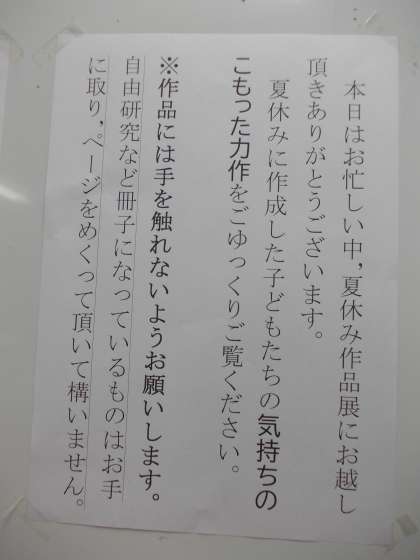 本日はお忙しい中，夏休み作品展にお越し
頂きありがとうございます。
夏休みに作成した子どもたちの気持ちの
こもった力作をごゆっくりご覧ください。
※作品には手を触れないようお願いします。
自由研究など冊子になっているものはお手
に取り，ページをめくって頂いて構いません。